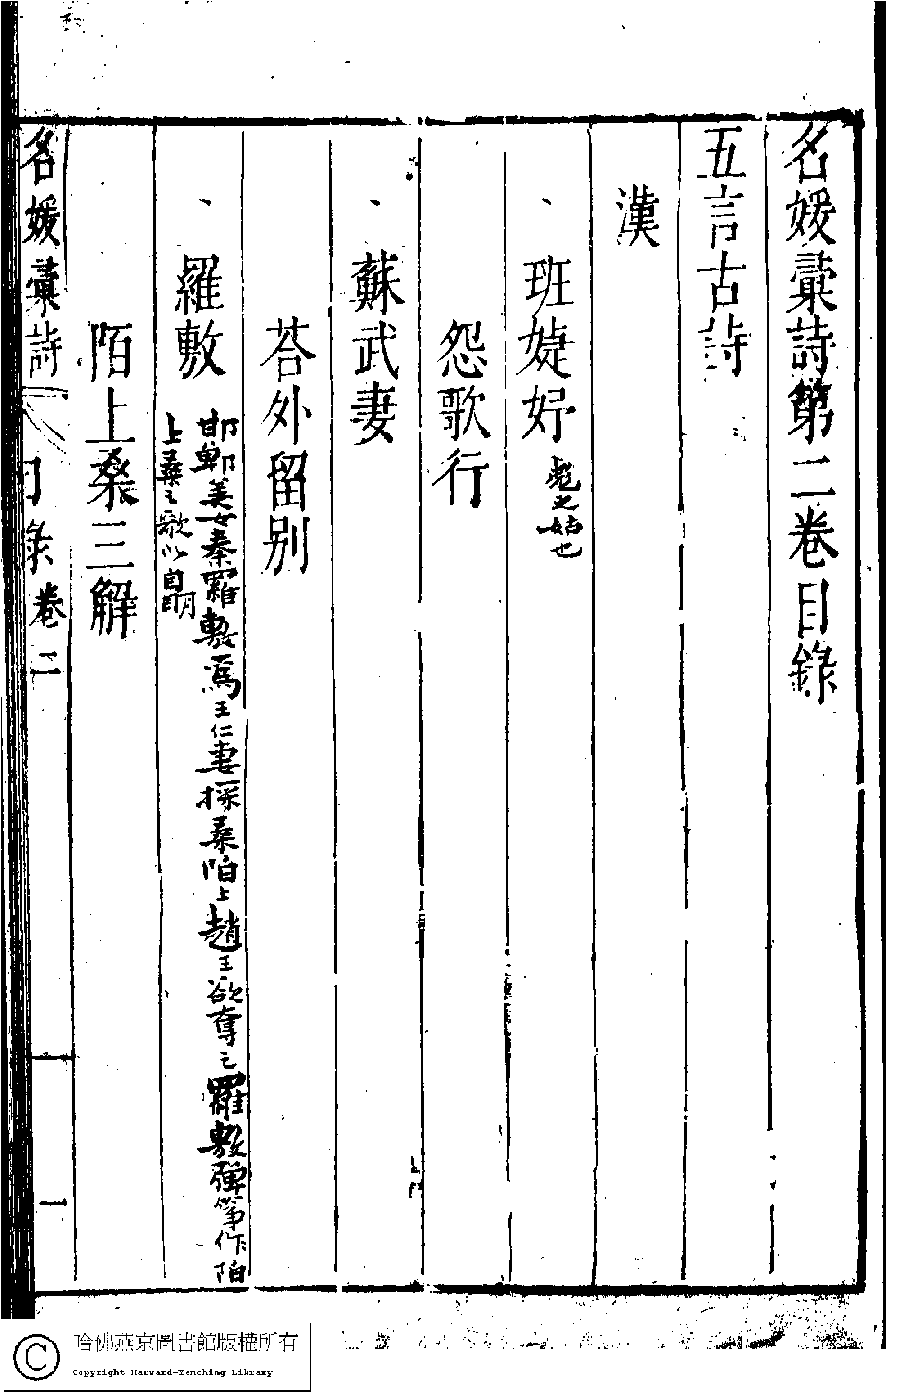 名媛彚詩第二卷目錄
五言古詩
漢
、班婕妤
彪之姑也
怨歌行
、蘇武妻
荅外留別
、羅敷
邯鄲美女秦羅敷爲王仁妻採桑陌上趙王欲奪之羅敷彈箏作陌
上桑之歌以自明
陌上桑三解
名媛彚詩 目錄卷二 一
哈佛燕京圖書館版權所有
Copyright Harvard-Yenching Library